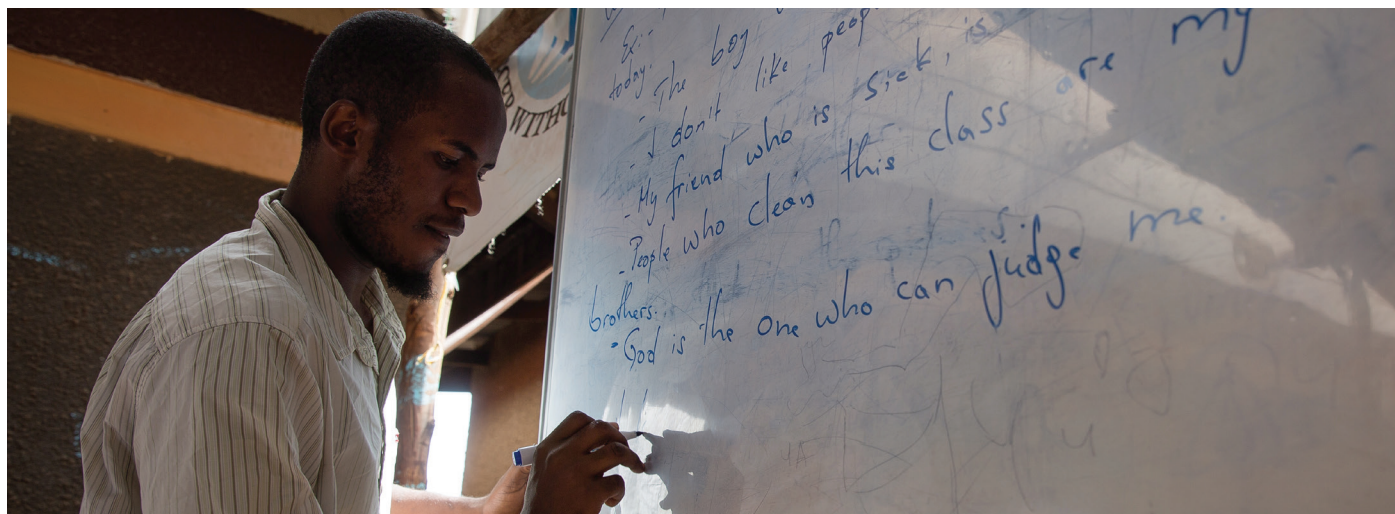 Ex:-
today.
- The boy
- I don't like peop
- My friend who is sick, is
- People who clean this class are my
brothers.
- God is the One who can judge me.
WITHO